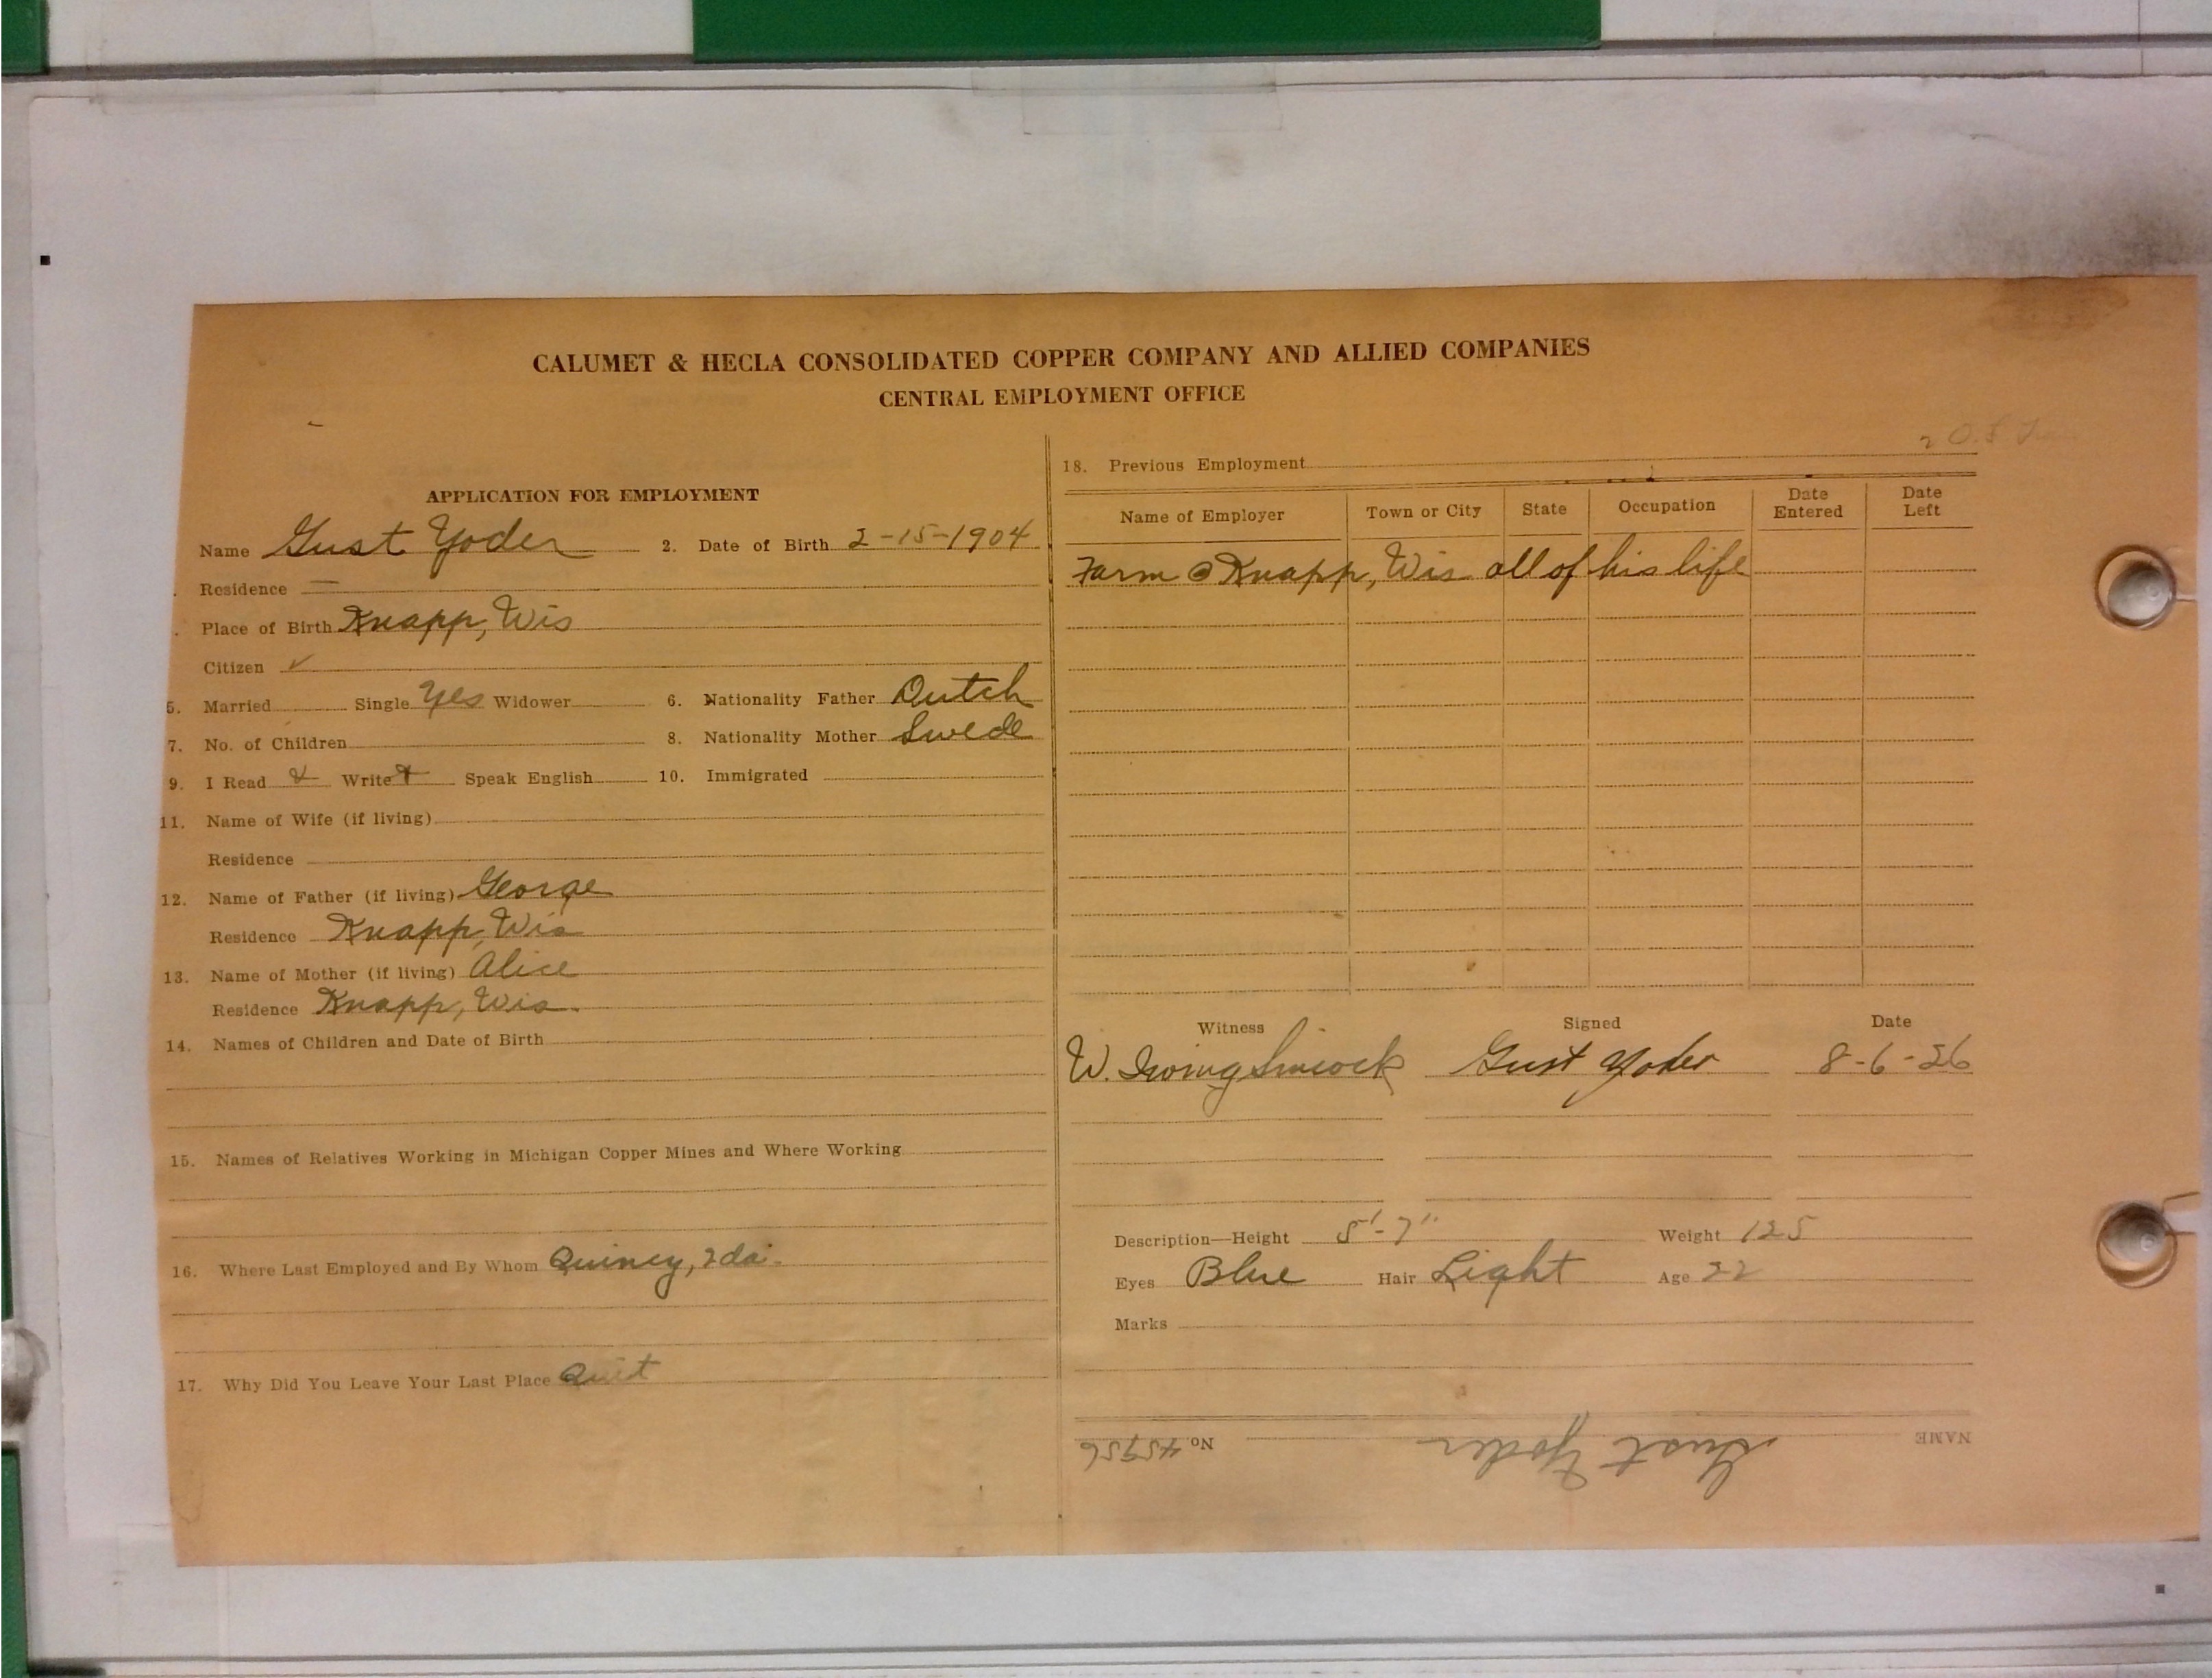 CALUMET & HECLA CONSOLIDATED COPPER COMPANY AND ALLIED COMPANIES
CENTRAL EMPLOYMENT OFFICE
APPLICATION FOR EMPLOYMENT
Name Gust Yoder 2. Date of Birth 2-15-1904
Residence —
Place of Birth Knapp, Wis
Citizen ✓
5. Married Single Yes Widower 6. Nationality Father Dutch
7. No. of Children 8. Nationality Mother Swede
9. I Read Write Speak English 10. Immigrated
11. Name of Wife (if living)
Residence
12. Name of Father (if living) George
Residence Knapp, Wis
13. Name of Mother (if living) Alice
Residence Knapp, Wis.
14. Names of Children and Date of Birth
15. Names of Relatives Working in Michigan Copper Mines and Where Working
16. Where Last Employed and By Whom Quincy, 2 da.
17. Why Did You Leave Your Last Place Quit
18. Previous Employment
Name of Employer Town or City State Occupation Date Entered Date Left
Farm @ Knapp, Wis all of his life
Witness Signed Date
W. Irving Gust Yoder 8-6-26
Description—Height 5'-7" Weight 125
Eyes Blue Hair Light Age 22
Marks
NAME Gust Yoder No. 45956